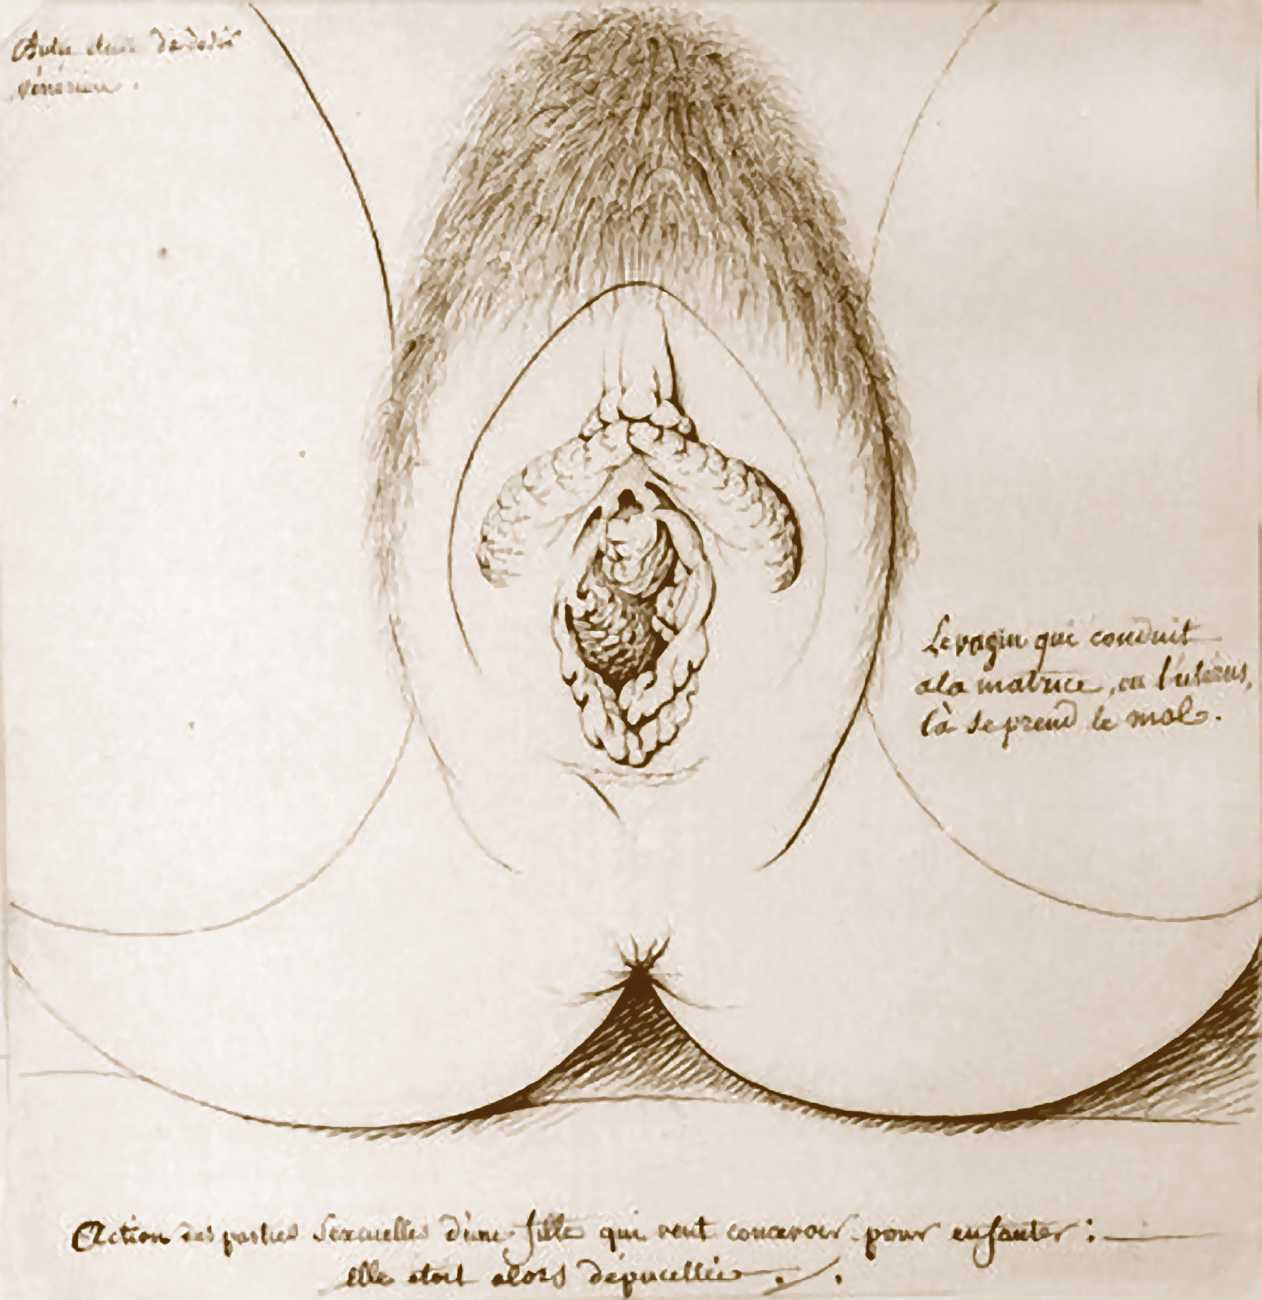 Le vagin qui conduit
a la matrice, ou l'uterus,
la se prend le mal.
Action des parties sexuelles d'une fille qui veut concevoir pour enfanter :
elle etoit alors depucellée.